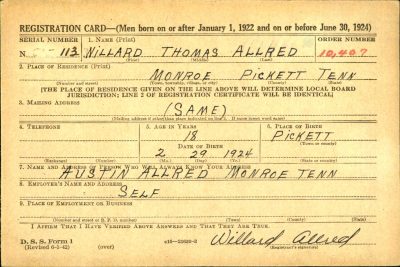 REGISTRATION CARD—(Men born on or after January 1, 1922 and on or before June 30, 1924)
SERIAL NUMBER 1. NAME (Print) ORDER NUMBER
N 113 WILLARD THOMAS ALLRED 10,407
(First) (Middle) (Last)
2. PLACE OF RESIDENCE (Print)
MONROE PICKETT TENN
(Number and street) (Town, township, village, or city) (County) (State)
[THE PLACE OF RESIDENCE GIVEN ON THE LINE ABOVE WILL DETERMINE LOCAL BOARD
JURISDICTION; LINE 2 OF REGISTRATION CERTIFICATE WILL BE IDENTICAL]
3. MAILING ADDRESS
(SAME)
(Mailing address if other than place indicated on line 2. If same, insert word same)
4. TELEPHONE 5. AGE IN YEARS 6. PLACE OF BIRTH
18 PICKETT
DATE OF BIRTH (Town or county)
2 29 1924
(Exchange) (Number) (Mo.) (Day) (Yr.) (State or country)
7. NAME AND ADDRESS OF PERSON WHO WILL ALWAYS KNOW YOUR ADDRESS
AUSTIN ALLRED MONROE TENN
8. EMPLOYER'S NAME AND ADDRESS
SELF
9. PLACE OF EMPLOYMENT OR BUSINESS
(Number and street or R. F. D. number) (Town) (County) (State)
I AFFIRM THAT I HAVE VERIFIED ABOVE ANSWERS AND THAT THEY ARE TRUE.
D. S. S. Form 1 Willard Allred
(Revised 6-9-42) (over) (Registrant's signature)